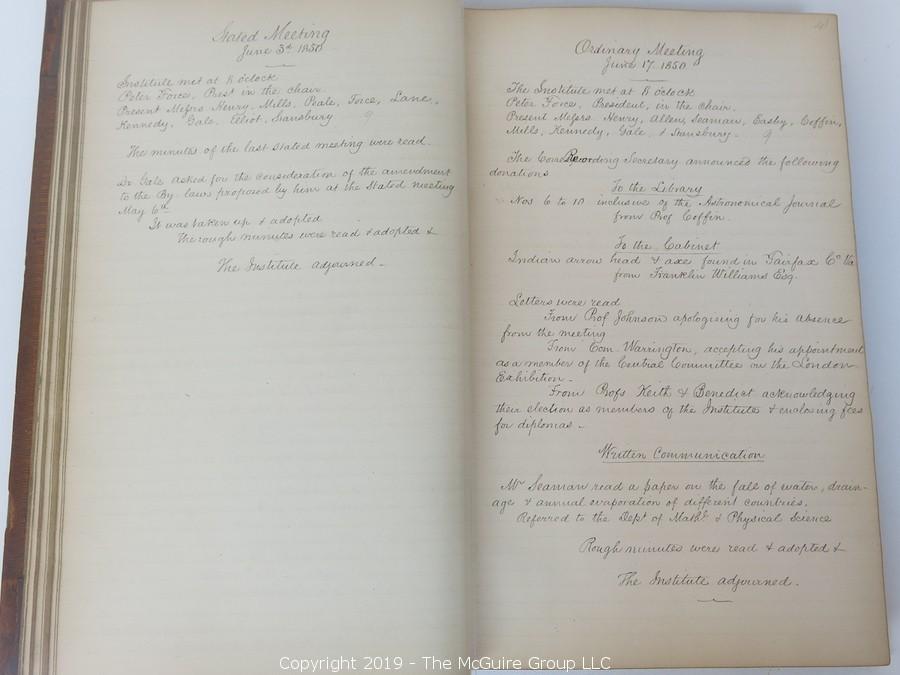 Stated Meeting
June 3d 1850
Institute met at 8 oclock
Peter Force, Prest in the chair.
Present Messrs Henry, Mills, Peale, Force, Lane,
Kennedy, Gale, Elliot, Stansbury 9
The minutes of the last stated meeting were read.
Dr Gale asked for the consideration of the amendment
to the By-laws proposed by him at the stated meeting
May 6th
It was taken up & adopted
The rough minutes were read & adopted &
The Institute adjourned _
41
Ordinary Meeting
June 17. 1850
The Institute met at 8 oclock
Peter Force, President, in the chair.
Present Messrs Henry, Allen, Seaman, Easby, Coffin,
Mills, Kennedy, Gale & Stansbury _ 9
The Recording Secretary announced the following
donations
To the Library
Nos 6 to 10 inclusive of the Astronomical Journal
from Prof Coffin.
To the Cabinet
Indian arrow head & axe found in Fairfax Co Va
from Franklin Williams Esq.
Letters were read
From Prof Johnson apologising for his absence
from the meeting
From Com. Warrington, accepting his appointment
as a member of the Central Committee on the London
Exhibition _
From Profs Keith & Benedict acknowledging
their election as members of the Institute & enclosing fees
for diplomas _
Written Communication
Mr Seaman read a paper on the fall of water, drain-
age & annual evaporation of different countries.
Referred to the Dept of Mathl & Physical Science
Rough minutes were read & adopted &
The Institute adjourned.
Copyright 2019 - The McGuire Group LLC